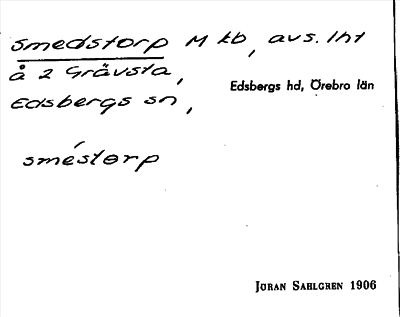 Smedstorp M kb, avs. lht
å 2 Grävsta,
Edsbergs hd, Örebro län
Edsbergs sn,
sméstorp
JÖRAN SAHLGREN 1906